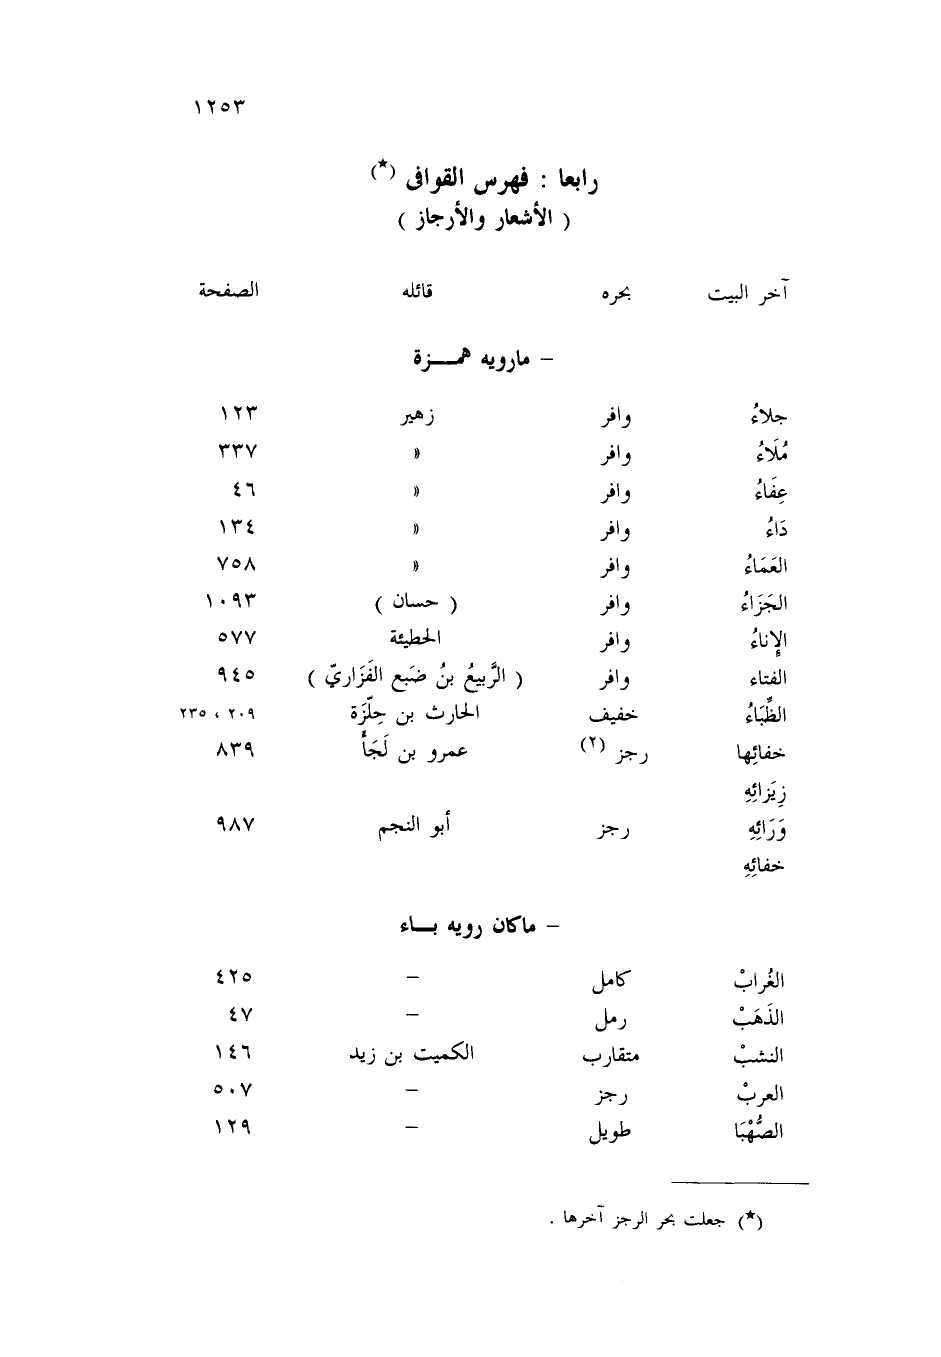 ١٢٥٣
رابعا : فهرس القوافى (★)
( الأشعار والأرجاز )
آخر البيت بحره قائله الصفحة
– مارويه همــزة
جلاءُ وافر زهير ١٢٣
مُلَاءُ وافر » ٣٣٧
عِفَاءُ وافر » ٤٦
دَاءُ وافر » ١٣٤
العَمَاءُ وافر » ٧٥٨
الجَزَاءُ وافر ( حسان ) ١٠٩٣
الإِناءُ وافر الحطيئة ٥٧٧
الفتاء وافر ( الرَّبيعُ بنُ ضَبع الفَزَاريّ ) ٩٤٥
الظِّبَاءُ خفيف الحارث بن حِلّزَة ٢٠٩ ، ٢٣٥
خفائِها رجز (٢) عمرو بن لَجَأ ٨٣٩
زِيَزائِهِ
وَرَائِهِ رجز أبو النجم ٩٨٧
خفائِهِ
– ماكان رويه بــاء
الغُرابْ كامل – ٤٢٥
الذَهَبْ رمل – ٤٧
النشبْ متقارب الكميت بن زيد ١٤٦
العربْ رجز – ٥٠٧
الصُّهْبَا طويل – ١٢٩
(★) جعلت بحر الرجز آخرها .